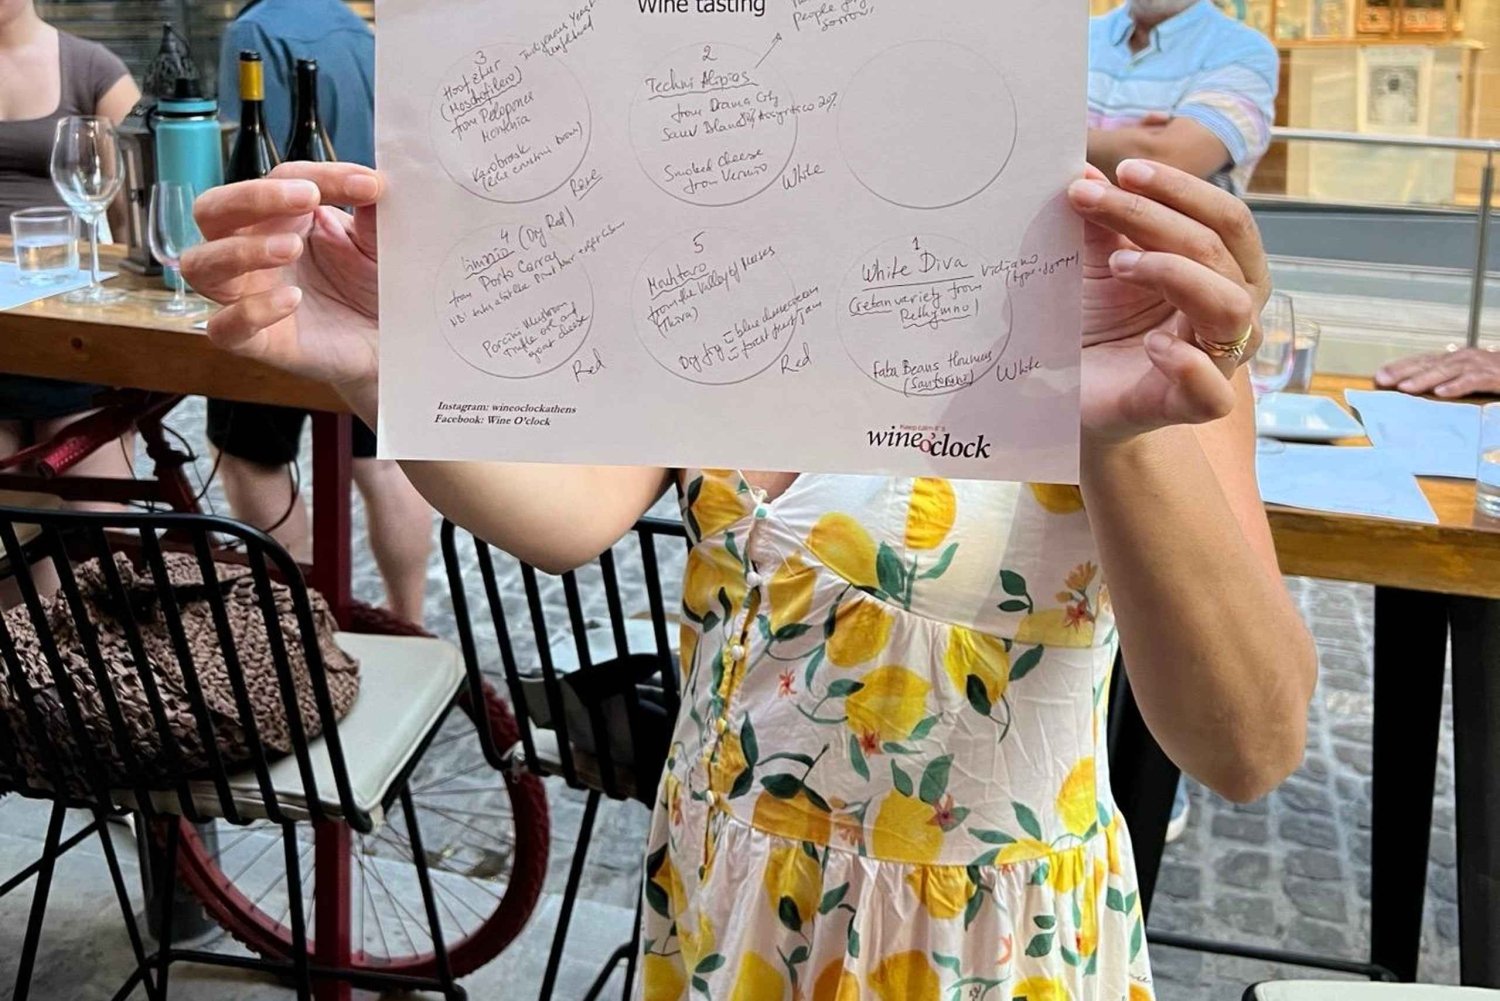 Wine tasting
People
sorrow,
3
(Moschofilero)
from Peloponnes
Indigenous Yeast
Rose
2
Techni Alipias
from Drama City
Sauv Blanc Assyrtico 20%
Smoked cheese
from Vermio
White
4 (Dry Red)
from Porto Carras
Porcini Mushroom
Truffle oil and
goat cheese
Red
5
Mouhtaro
from the Valley of Muses
(Thiva)
Dry fig
forest fruit jam
Red
1
White Diva
Vidiano
Cretan variety from
Rethymno
Faba Beans Houmus
(Santorini)
White
Instagram: wineoclockathens
Facebook: Wine O'clock
keep calm it's
wine o'clock